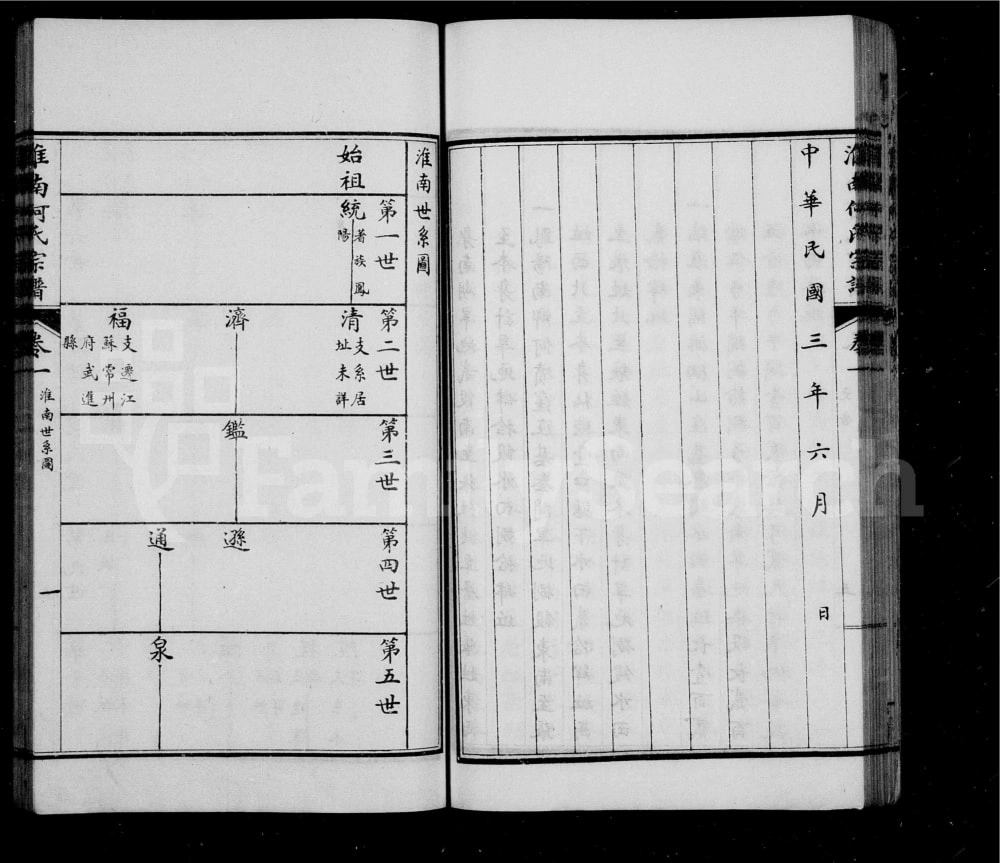 中華民國三年六月 日
淮南世系圖
始祖
第一世
統
著族鳳
陽
第二世
清
支系居
址未詳
濟
福
支遷江
蘇常州
府武進
縣
第三世
鑑
第四世
遜
通
第五世
泉
淮南何氏宗譜
卷一
淮南世系圖
一
FamilySearch